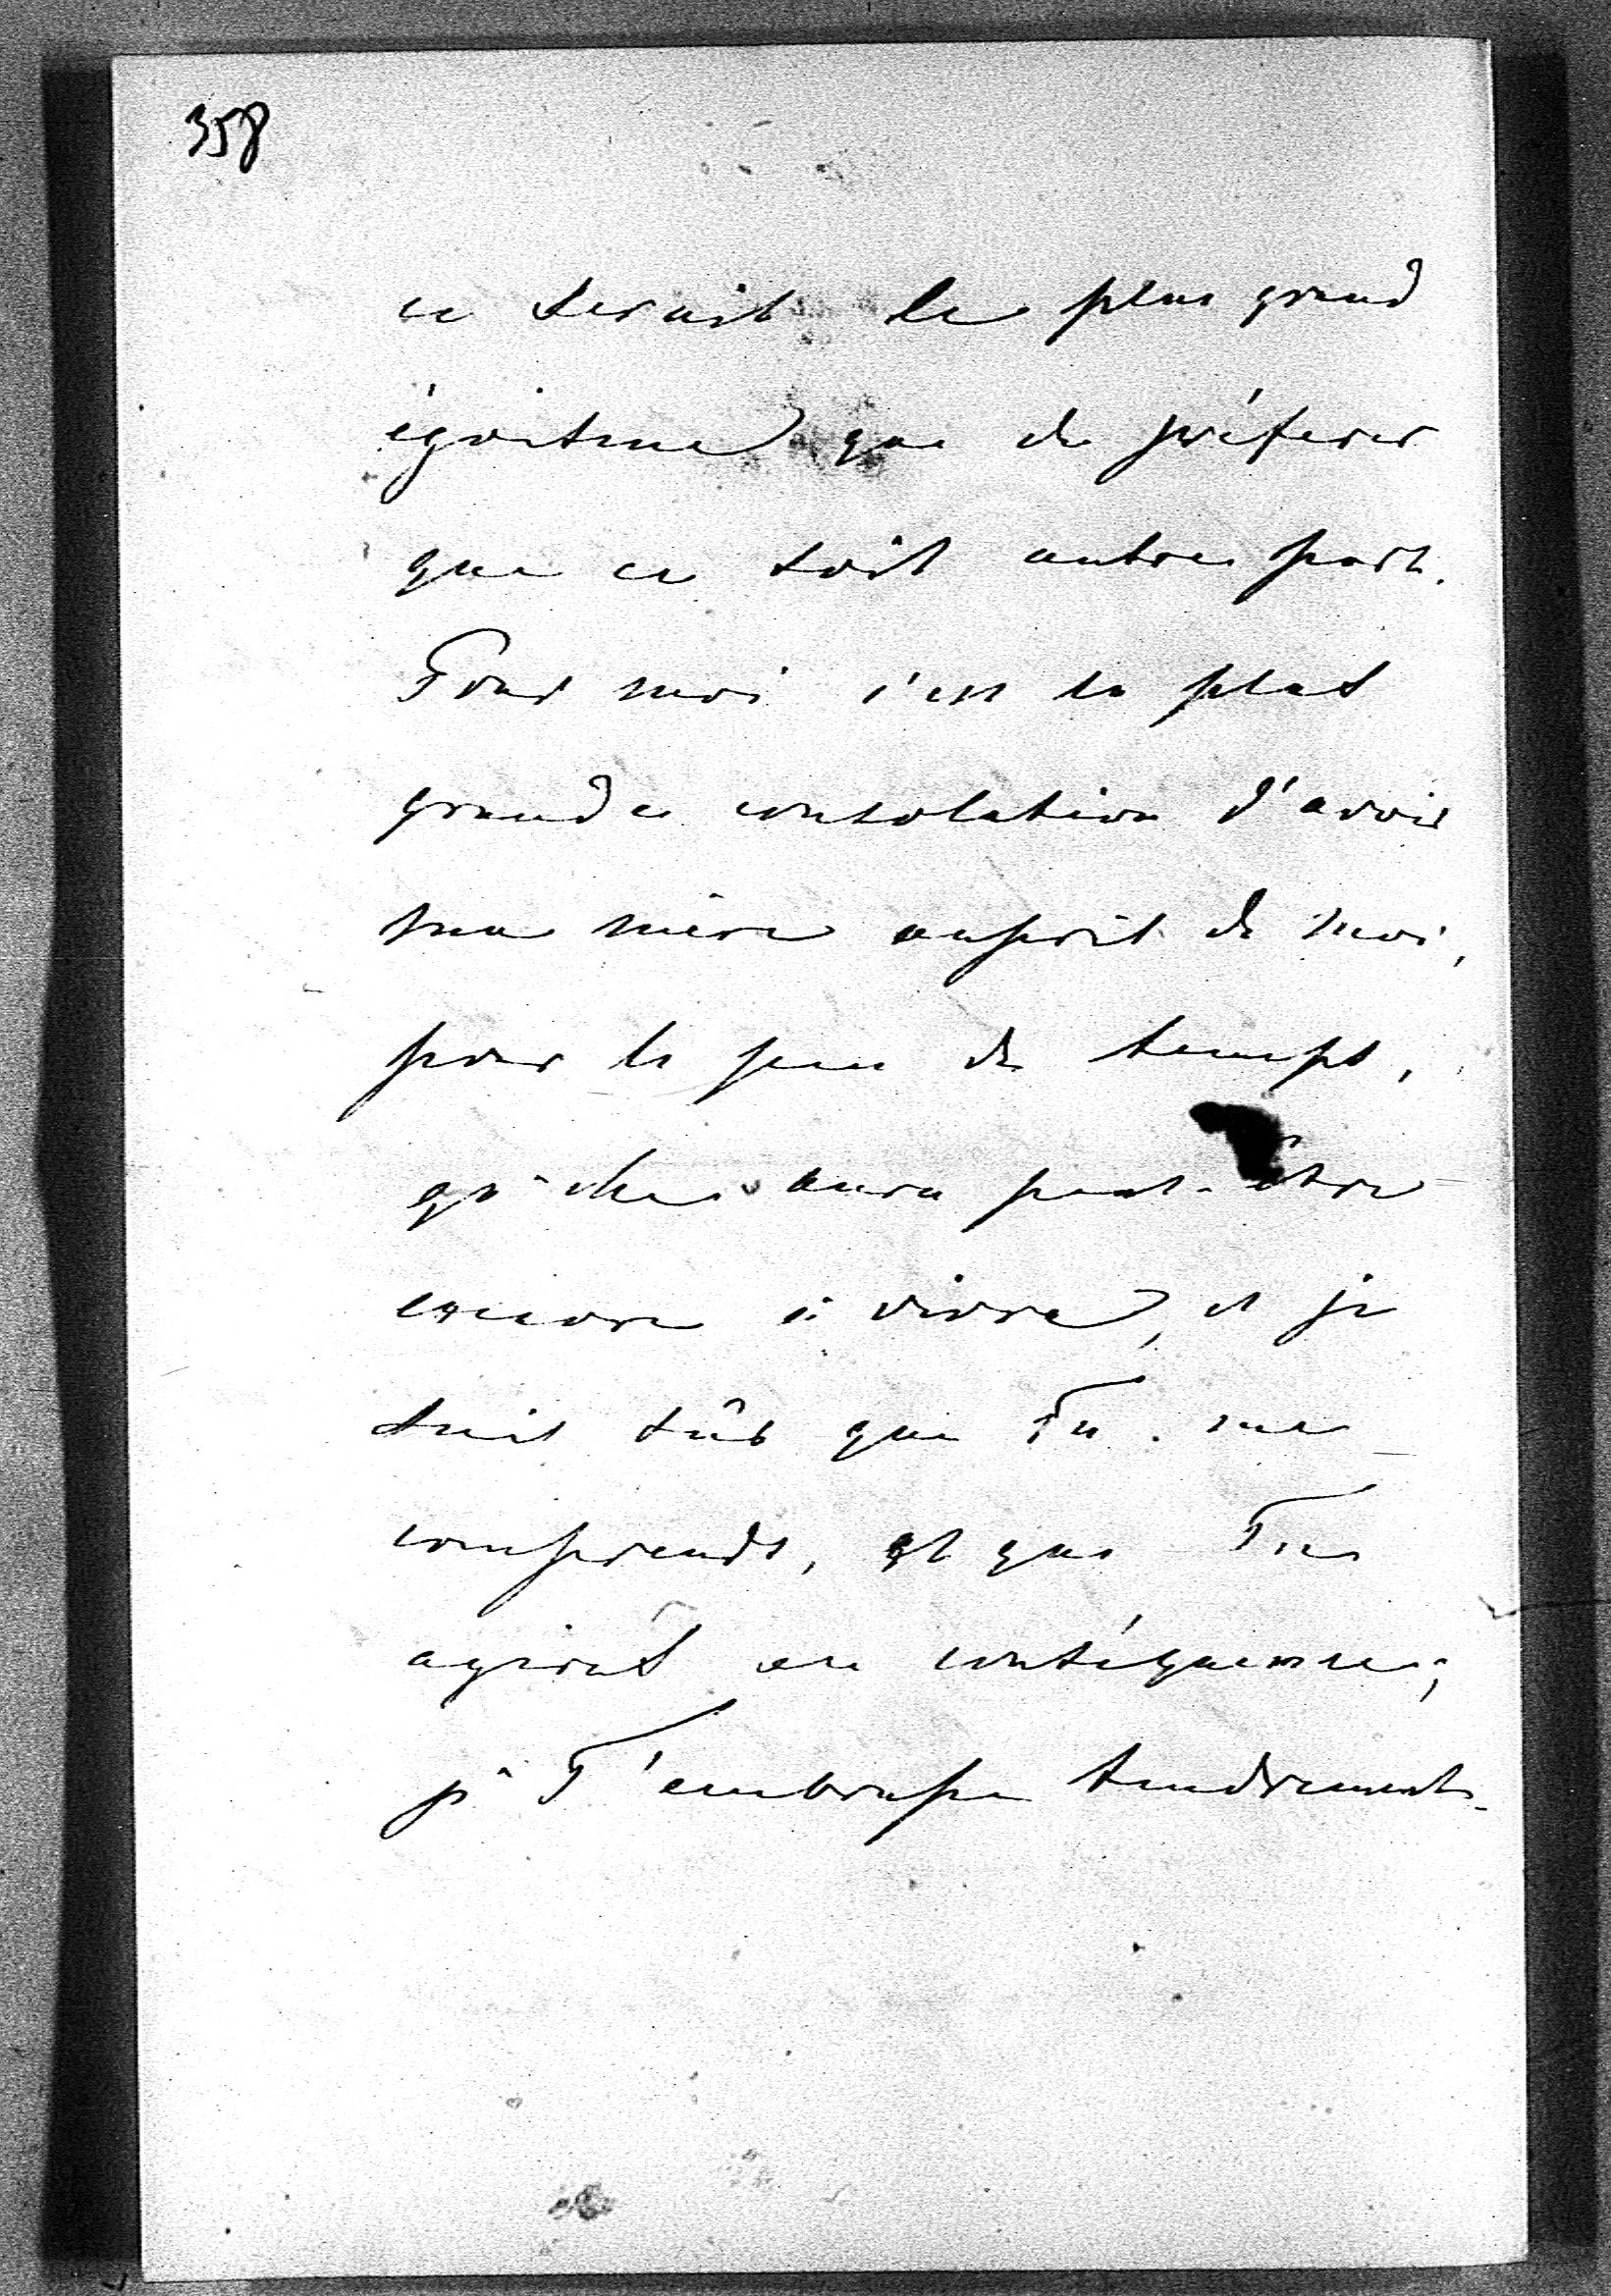 358
ce serait le plus grand
égoisme que de préferer
que ce soit autre part.
Pour moi c'est la plus
grande consolation d'avoir
ma mère auprès de moi,
pour le peu de temps,
qu'elle aura peut-être
encore à vivre, et je
suis sûr que Tu me
comprends, et que Tu
agiras en conséquence;
je T'embrasse tendrement.